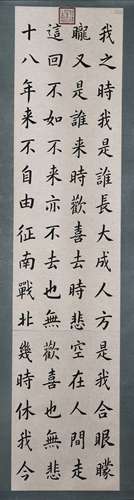 我之時我是誰長大成人方是我合眼矇
朧又是誰來時歡喜去時悲空在人間走
這回不如不來亦不去也無歡喜也無悲
十八年來不自由征南戰北幾時休我今